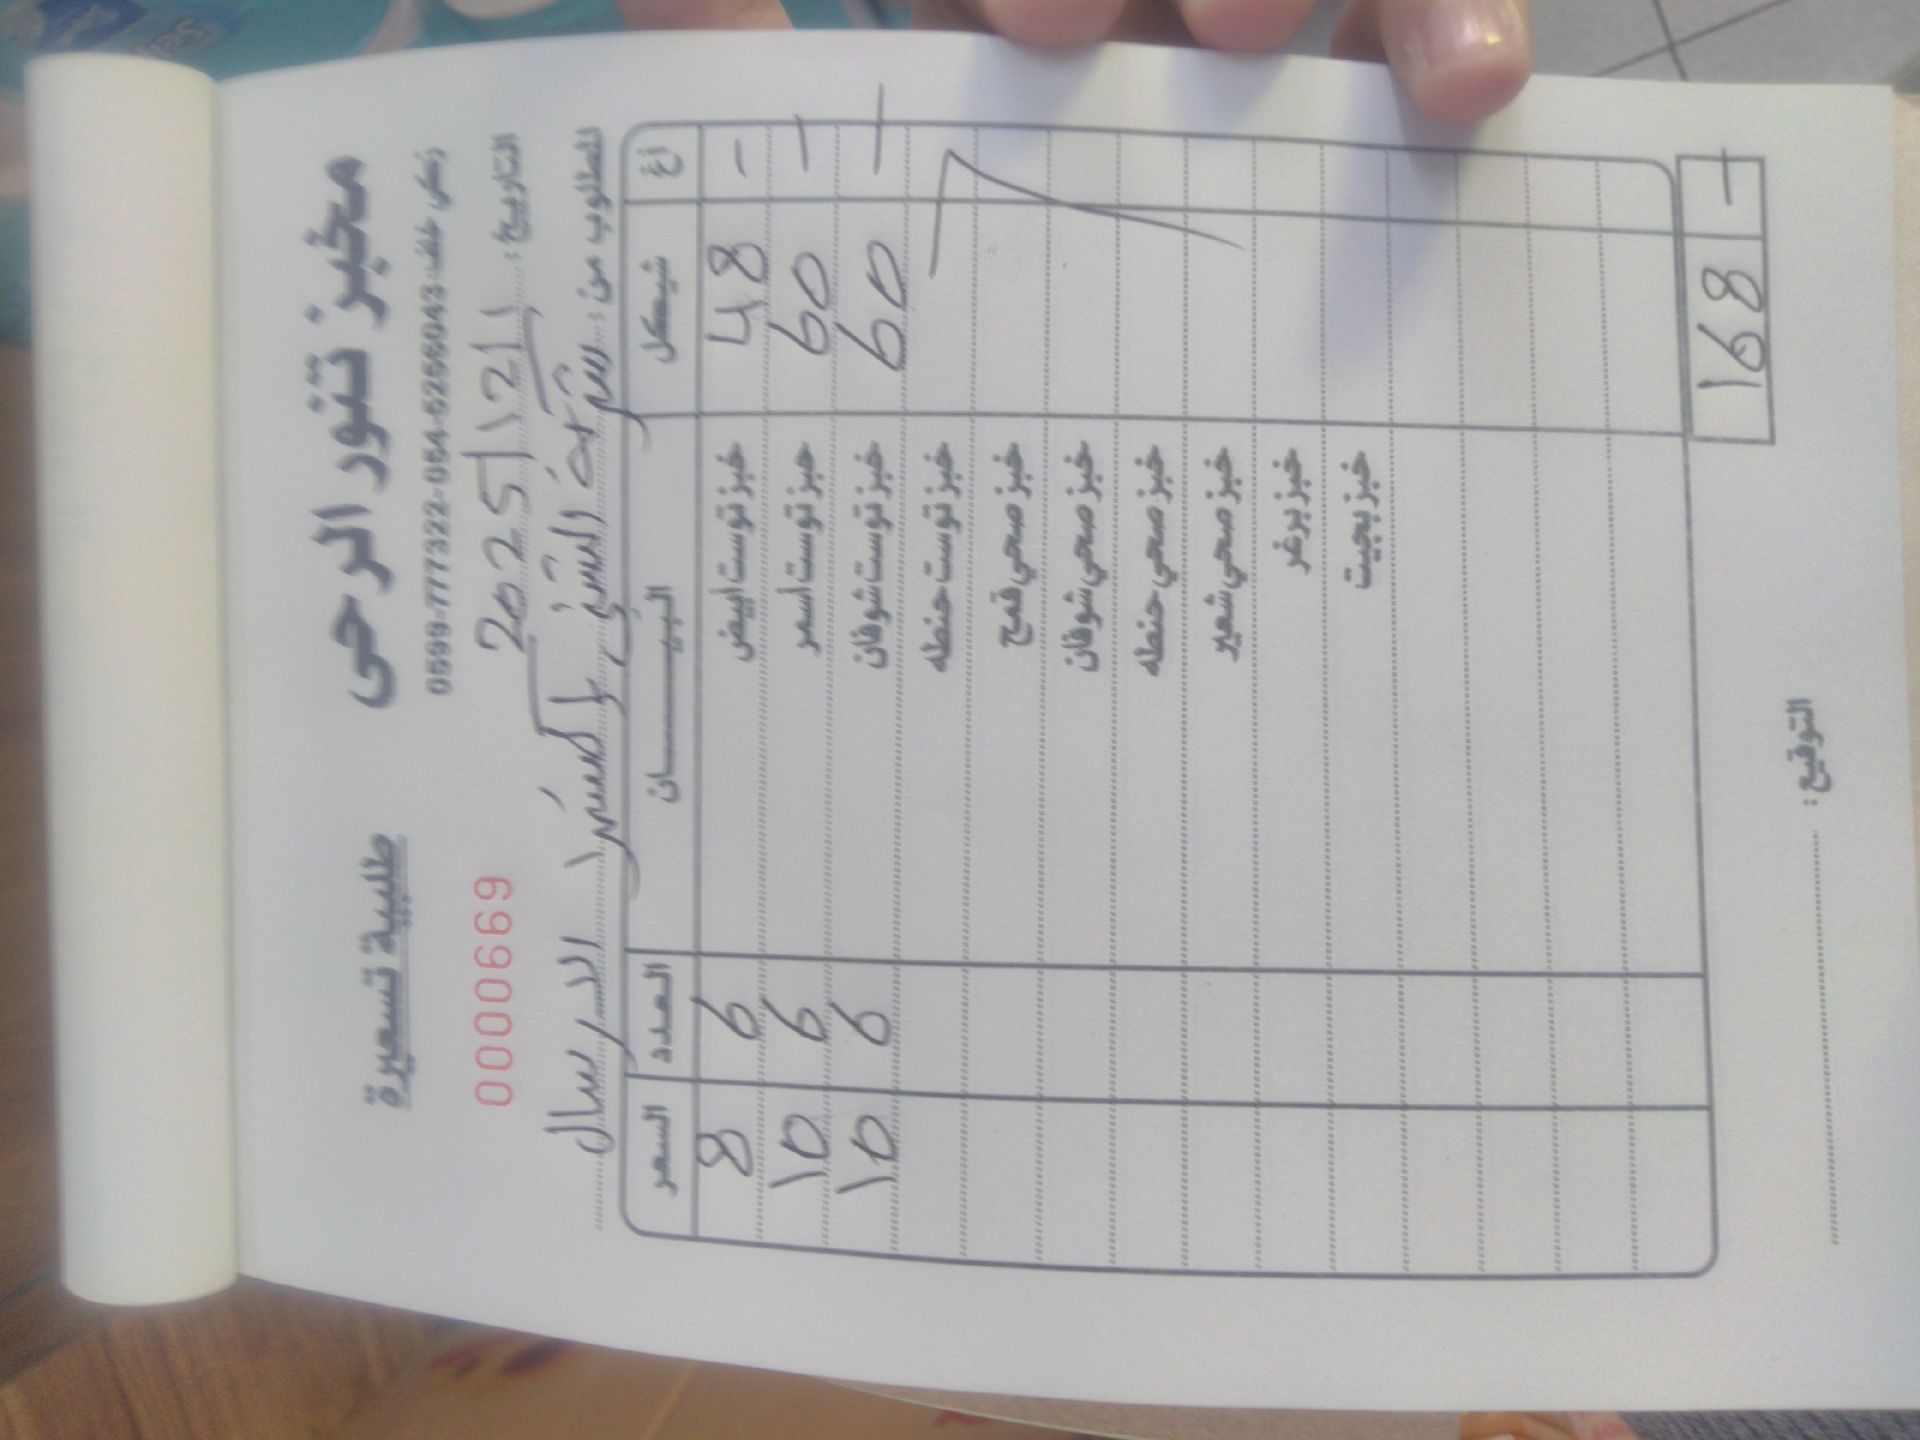 مخبز تنور الرحى
طلبية تسعيرة
زكي خلف: 0599-777322-054-5256043
000669
التاريخ: 2025/12/1
المطلوب من: شركة الشني
البيـــان
السعر العدد البيــــــان شيكل اغ
8 6 خبز توست ابيض 48 -
10 6 خبز توست أسمر 60 -
10 6 خبز توست شوفان 60 -
خبز توست حنطه
خبز صحي قمح
خبز صحي شوفان
خبز صحي حنطه
خبز صحي شعير
خبز برغر
خبز بجيت
168 -
التوقيع: